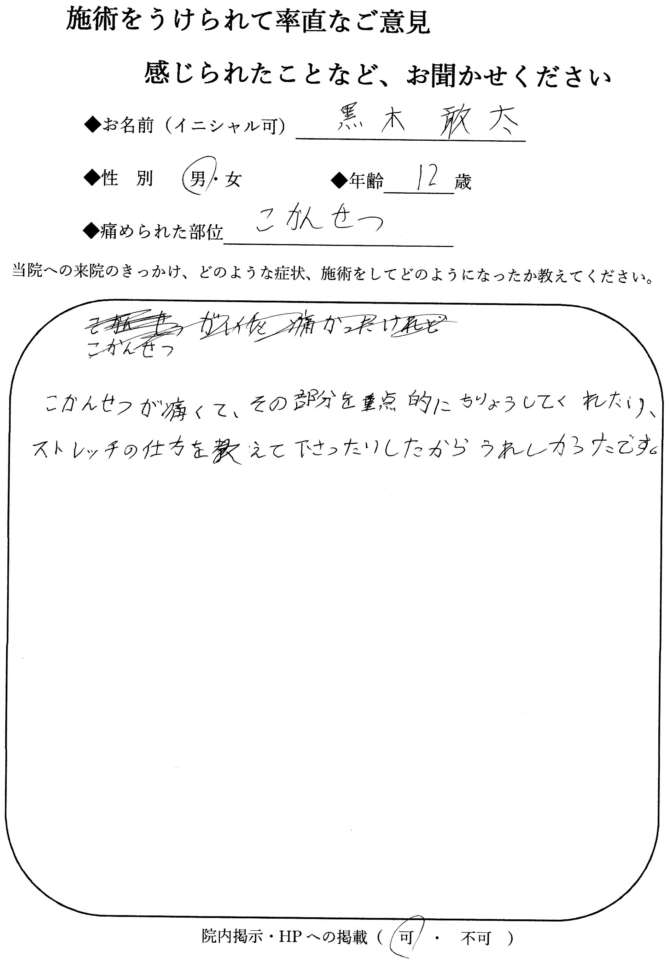 施術をうけられて率直なご意見
感じられたことなど、お聞かせください
◆お名前（イニシャル可） 黒木 敢太
◆性 別 男・女 ◆年齢 12 歳
◆痛められた部位 こかんせつ
当院への来院のきっかけ、どのような症状、施術をしてどのようになったか教えてください。
痛かったけれど
こかんせつ
こかんせつが痛くて、その部分を重点的にちりょうしてくれたり、
ストレッチの仕方を教えて下さったりしたからうれしかったです。
院内掲示・HPへの掲載（ 可 ・ 不可 ）